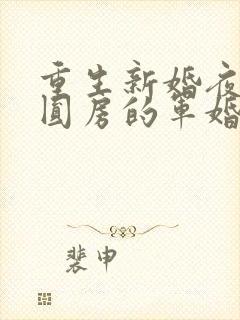 重生新婚夜
圆房的军婚
裴申